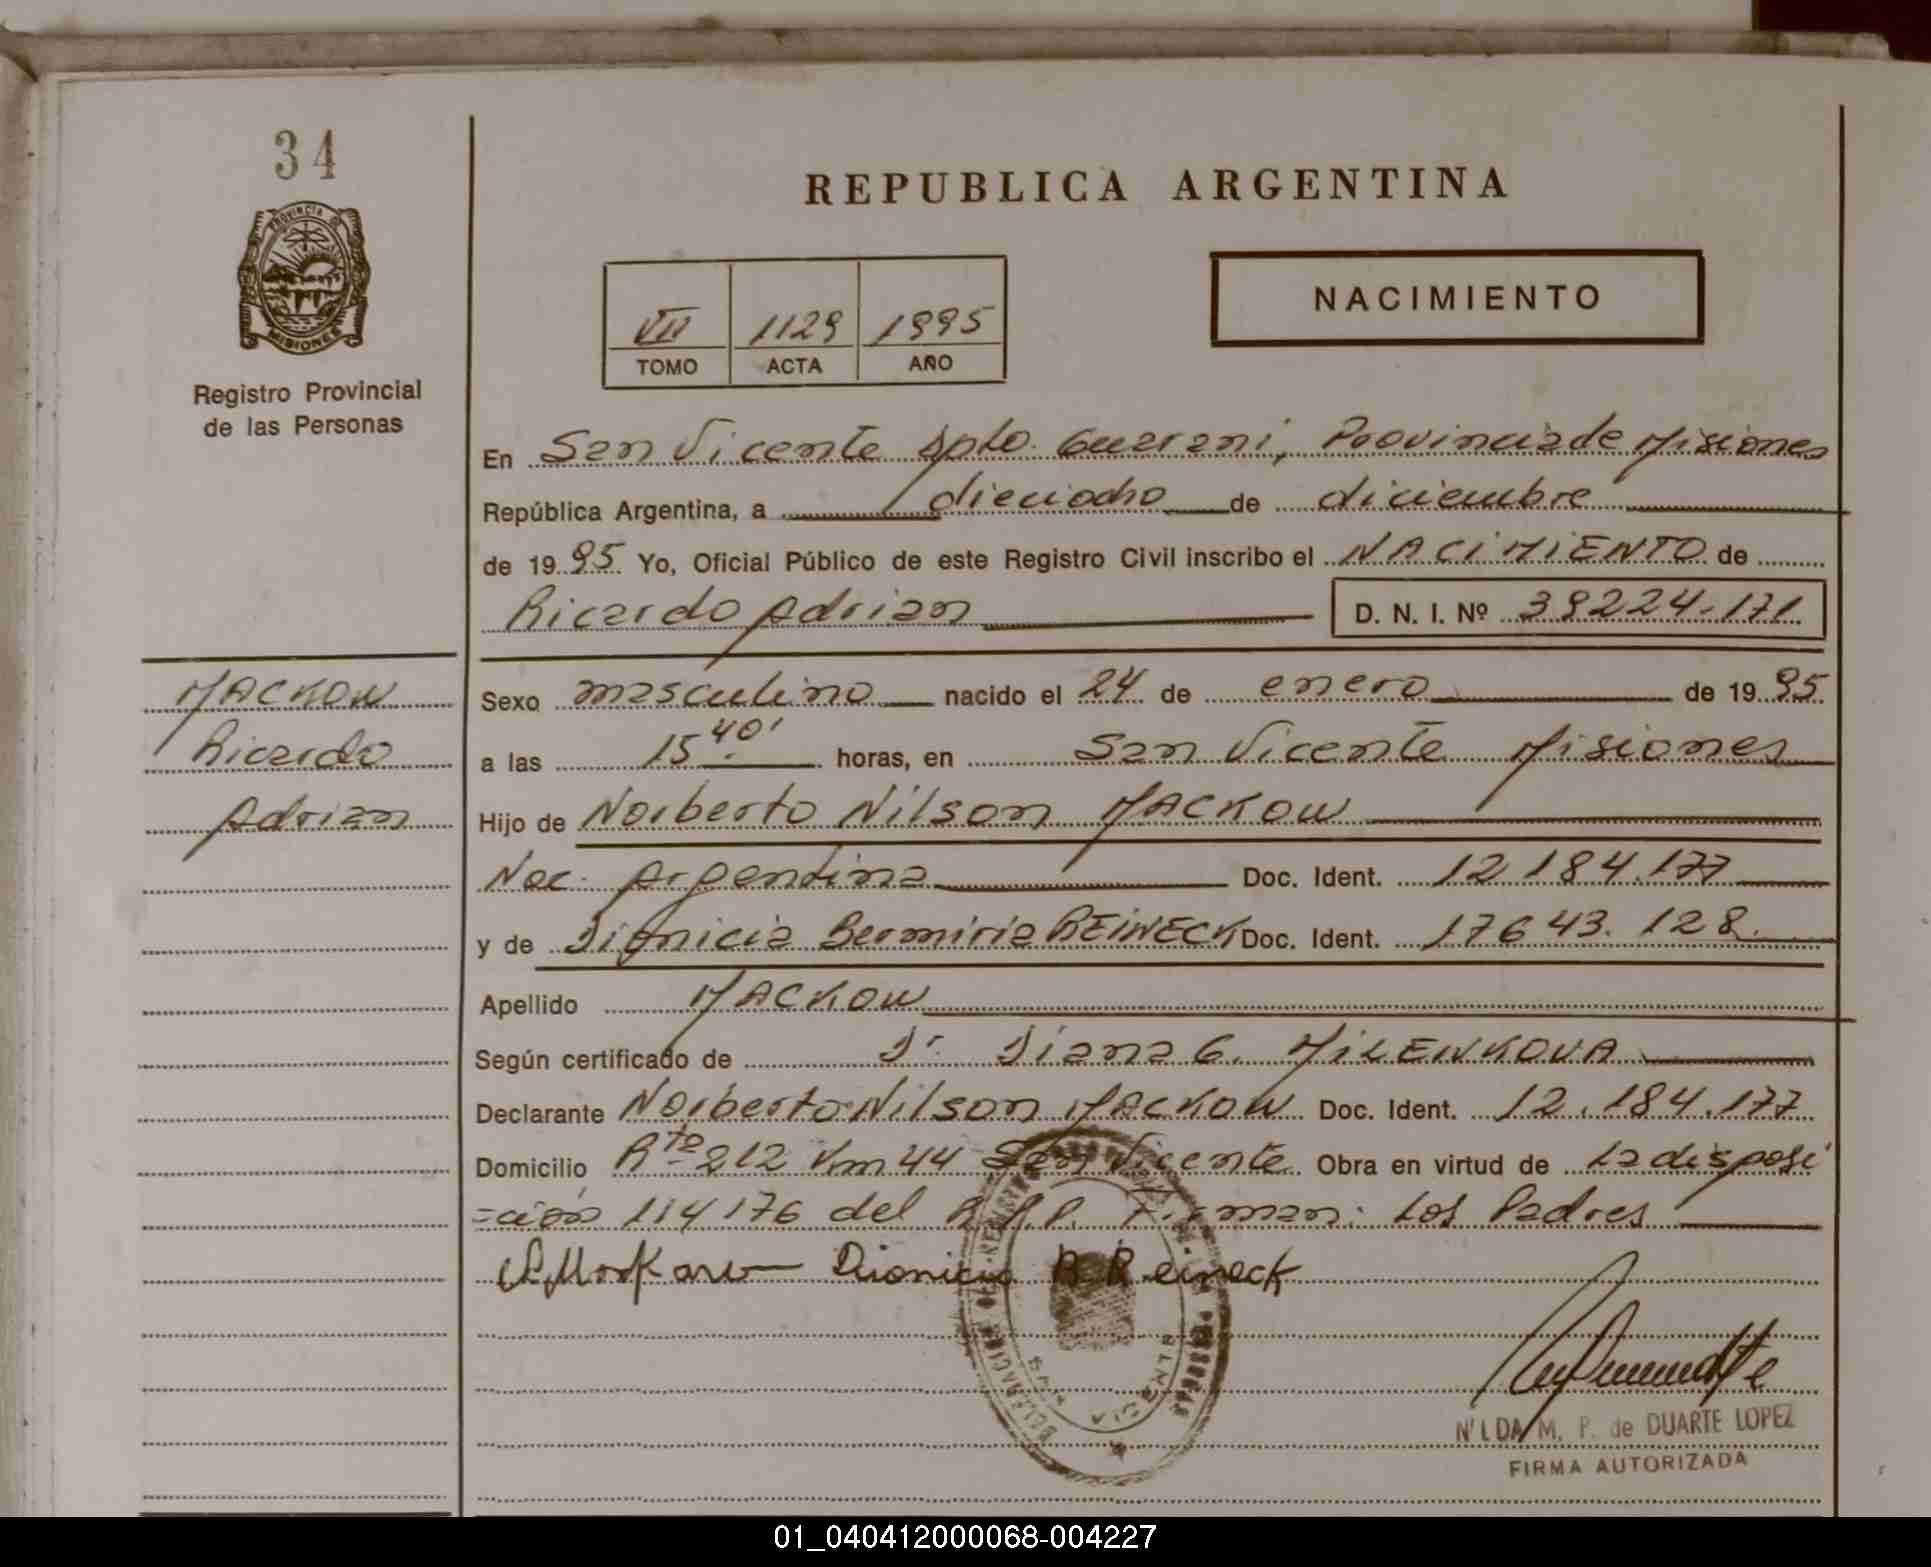 34
REPUBLICA ARGENTINA
PROVINCIA DE
MISIONES
Registro Provincial
de las Personas
NACIMIENTO
VII 1129 1995
TOMO ACTA AÑO
En San Vicente Dpto. Guarani, Provincia de Misiones
República Argentina, a dieciocho de diciembre
de 1995 Yo, Oficial Público de este Registro Civil inscribo el NACIMIENTO de
Ricardo Adrian D. N. I. Nº 39224.171
MACKOW
Ricardo
Adrian
Sexo masculino nacido el 24 de enero de 1995
a las 15 40' horas, en San Vicente Misiones
Hijo de Norberto Nilson MACKOW
Nac. Argentina Doc. Ident. 12.184.177
y de Dionicia Bermiria REINECK Doc. Ident. 17643.128
Apellido MACKOW
Según certificado de Dr. Diana G. MILENKOVA
Declarante Norberto Nilson MACKOW Doc. Ident. 12.184.177
Domicilio Rta 212 Km 44 San Vicente Obra en virtud de la disposi
=ción 114176 del R.P.P. Firman: Los Padres
Dionicia B. Reineck
N LDA M. P. de DUARTE LOPEZ
FIRMA AUTORIZADA
01_040412000068-004227